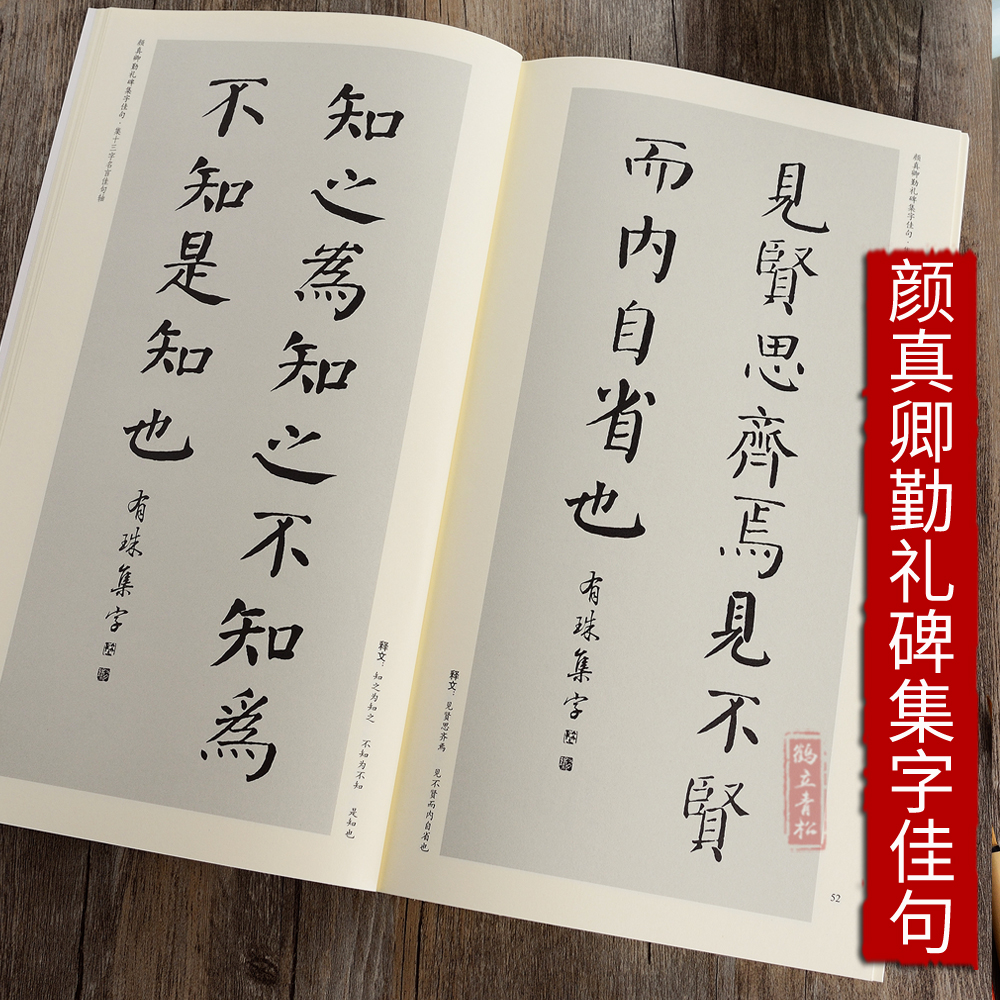 颜真卿勤礼碑集字佳句·集十三字名言佳句轴
知之為知之不知為
不知是知也
有珠集字
释文：知之为知之 不知为不知 是知也
颜真卿勤礼碑集字佳句·
見賢思齊焉見不賢
而内自省也
有珠集字
释文：见贤思齐焉 见不贤而内自省也
52
鹤立青松
颜真卿勤礼碑集字佳句